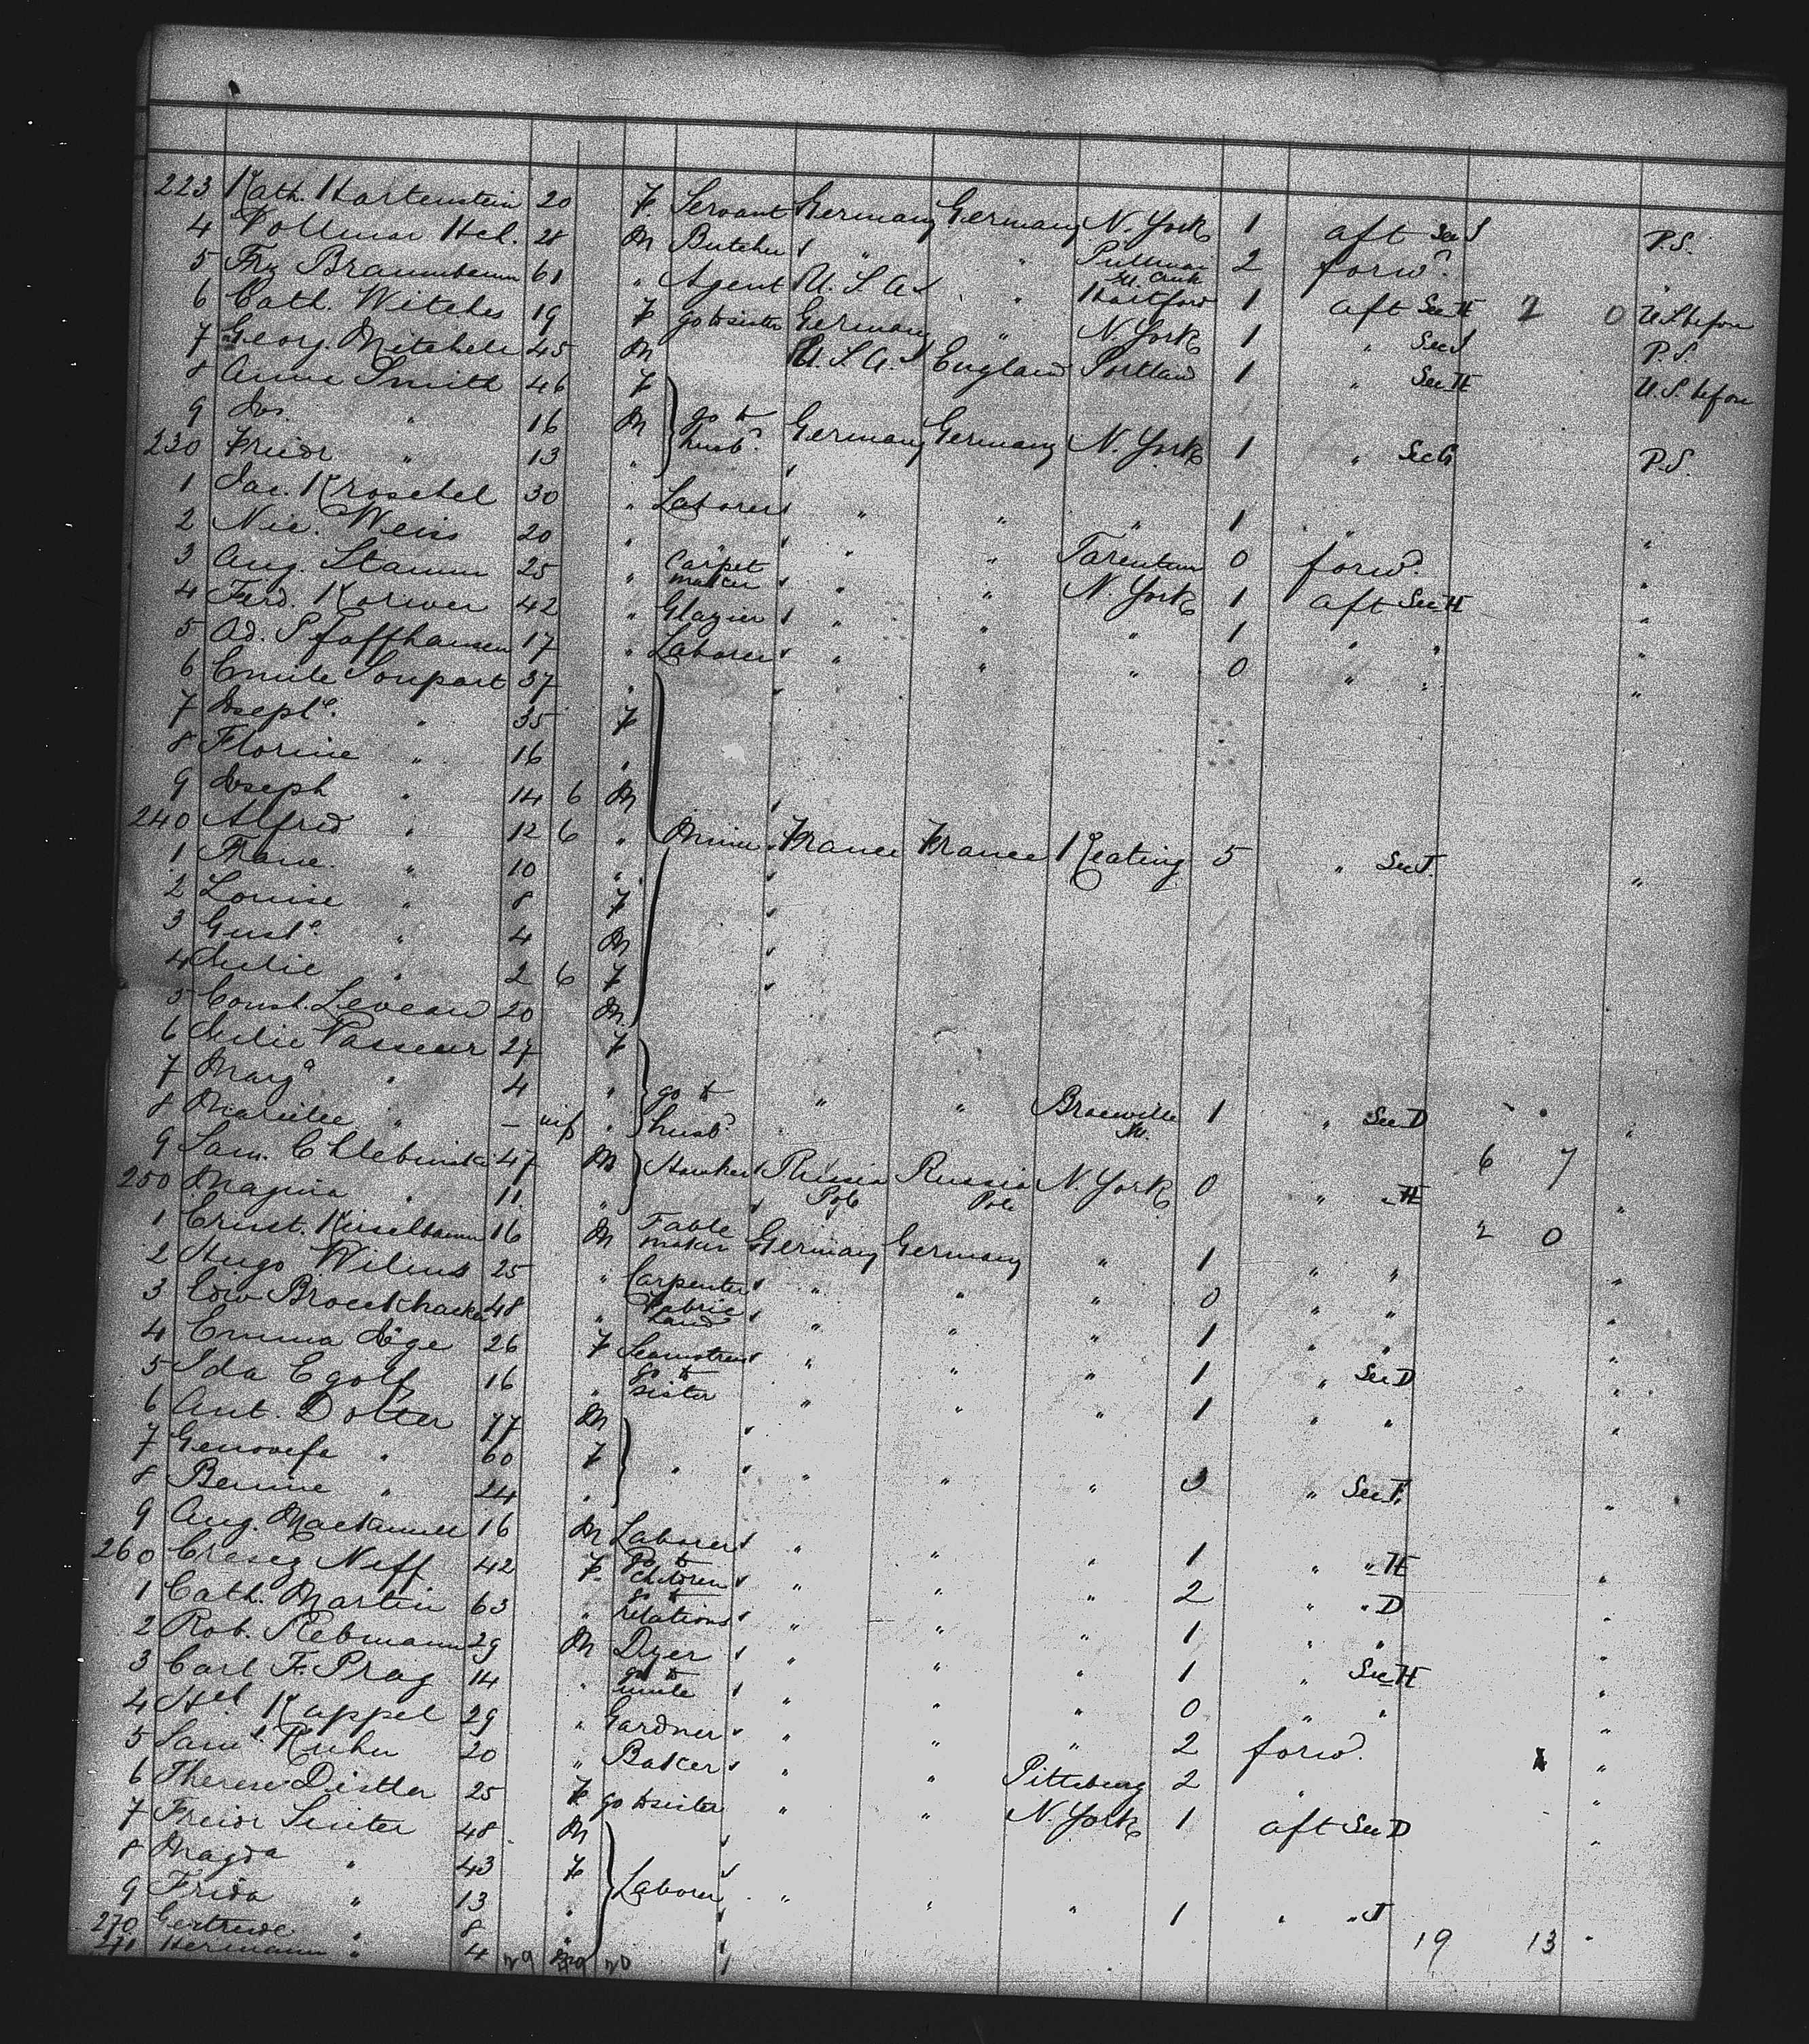 223 Kath. Hartenstein 20 F. Servant Germany Germany N. York 1 aft Sec J P.S.
4 Vollmar Hch. 28 M Butcher " " Pullman 2 forw. "
5 Frz Braunbaum 61 " Agent U.S.A. " Hartford 1 aft Sec H 2 0 U.S. before
6 Cath. Witches 19 F go to sister Germany " N. York 1 " Sec J P.S.
7 Georg. Mitchele 45 M U.S.A. England Portland 1 " Sec H U.S. before
8 Anna Smith 46 F
9 Jos. " 16 M go to husb. Germany Germany N. York 1 " Sec G P.S.
230 Friedr " 13 "
1 Jac. Kroschel 30 " Laborer " " " 1 " "
2 Nic. Weiss 20 " " " " Tarentum 0 forw. "
3 Aug. Stamm 25 " Carpet maker " " N. York 1 aft Sec H "
4 Ferd. Koriwer 42 " Glazier " " " 1 " " "
5 Ad. Pfaffhausen 17 " Laborer " " " 0 " " "
6 Emile Soupart 37 "
7 Josephe. " 35 F
8 Florine " 16 "
9 Joseph " 14 6 M
240 Alfred " 12 6 " Miner France France Keating 5 " Sec J. "
1 Franc. " 10 "
2 Louise " 8 F
3 Guste. " 4 M
4 Julie " 2 6 F
5 Const. Leveau 20 M.
6 Julie Vasseur 27 F
7 Marga " 4 " go to husb " " 1 " Sec D "
8 " – inf "
9 Sam. Chlebinski 47 M Hawker Russia Pol. Russia Pol. N. York 0 " " H 6 7 "
250 " 11 "
1 Ernst. Kisselbaum 16 M Table maker Germany Germany " 1 " " 2 0 "
2 Hugo Wilins 25 " Carpenter " " " 0 " " "
3 Edw Broeckhacker 48 " Fabric hand " " " 1 " " "
4 Emma Döge 26 F Seamstress " " " 1 " Sec D "
5 Ida Egolf 16 " go to sister " " " 1 " " "
6 Ant. Dotter 77 M
7 Genovefa " 60 F " " " " 3 " Sec F. "
8 " 24 "
9 Aug. 16 M Laborer " " " 1 " " H "
260 Cresez Neff 42 F. go to children " " " 2 " " D "
1 Cath. Martin 63 " go to relations " " " 1 " " "
2 Rob. Rebmann 29 M Dyer " " " 1 " Sec H "
3 Carl F. Prag 14 " go to uncle " " " 0 " " "
4 Hch. Kappel 29 " Gardner " " " 2 forw. "
5 Saml. Kuhn 20 " Baker " " Pittsburg 2 " "
6 Therese Distler 25 F. go to sister " " N. York 1 aft Sec D "
7 Friedr Suiter 48 M
8 Magda " 43 F
9 Frida " 13 " Laborer " " " 1 " " J 19 13 "
270 Gertrude " 8 "
271 Hermann " 4